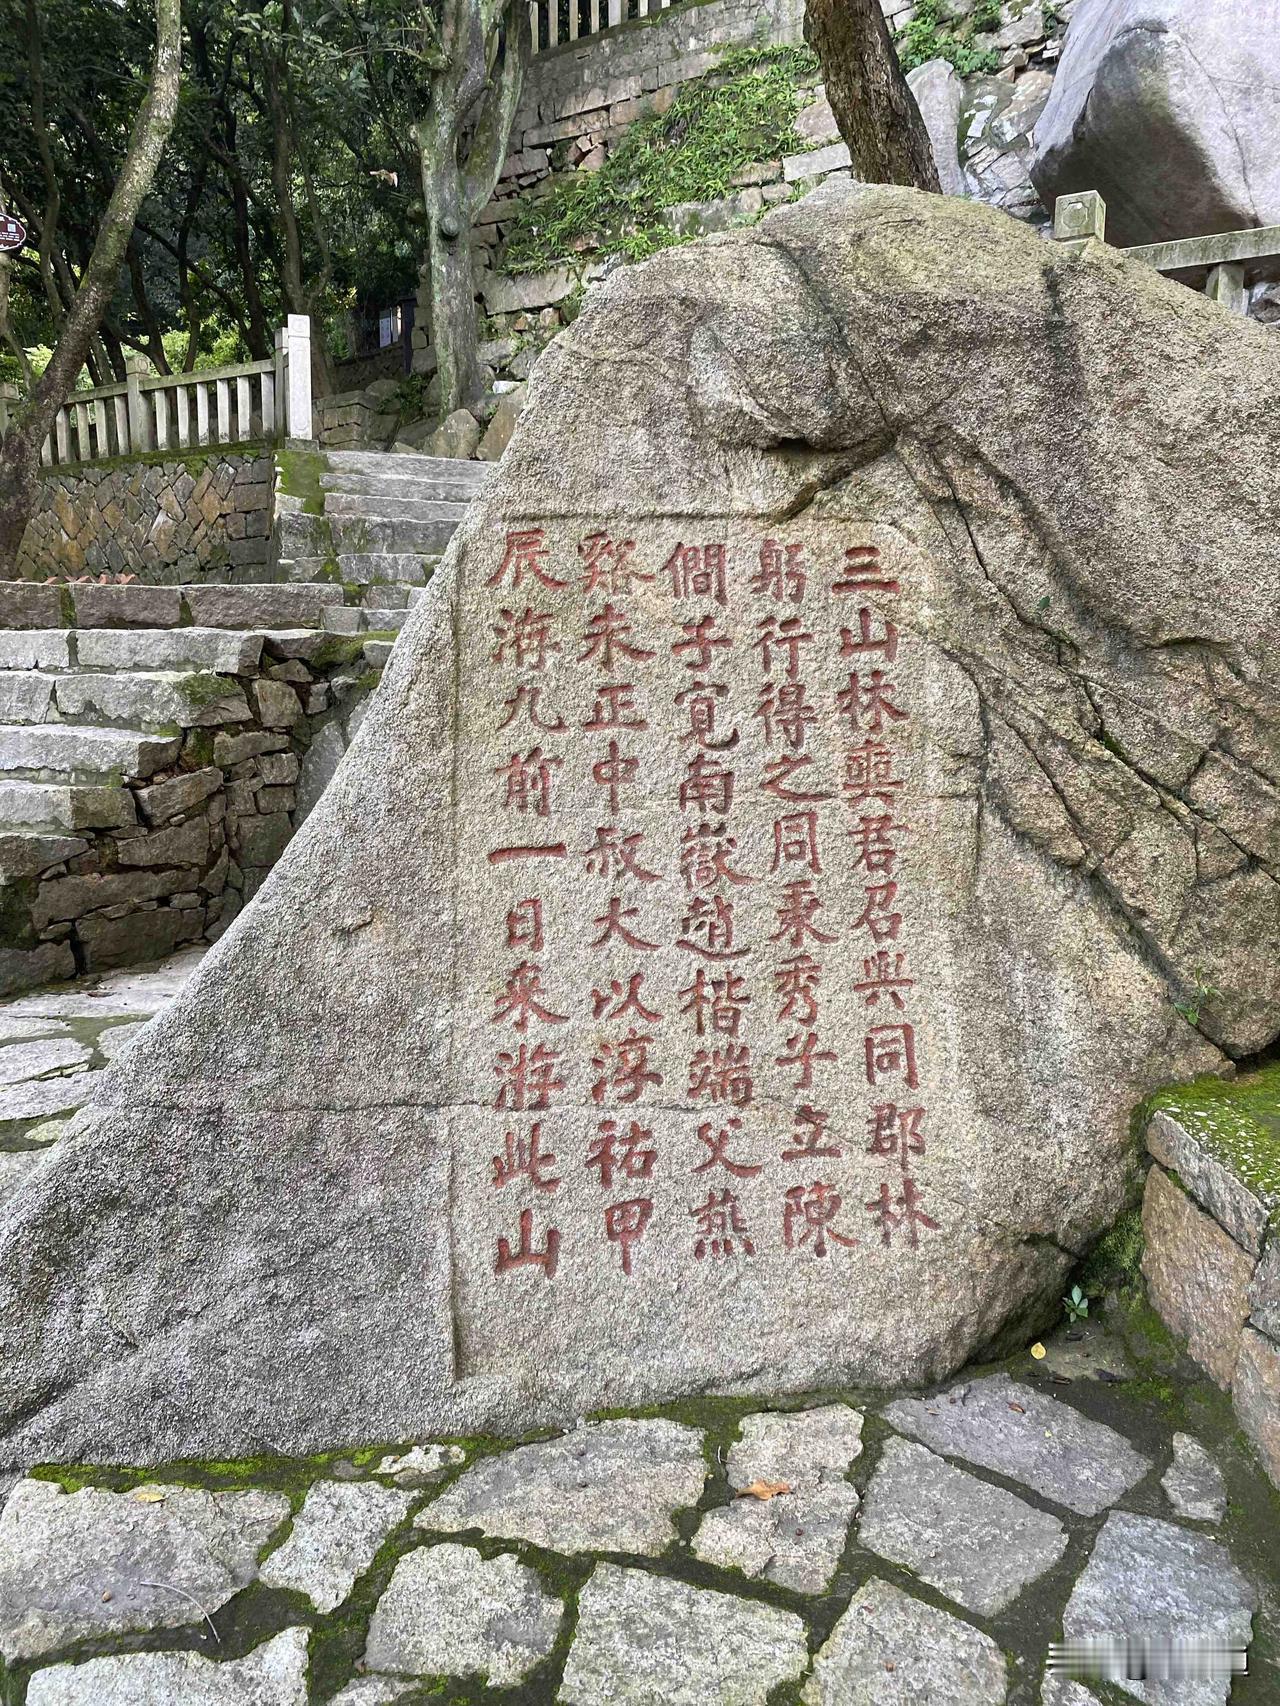 三山林奭君召與同郡林
躬行得之同秉秀子立陳
僩子寬南嶽趙楷端父燕
谿朱正中叔大以淳祐甲
辰洊九前一日來游此山